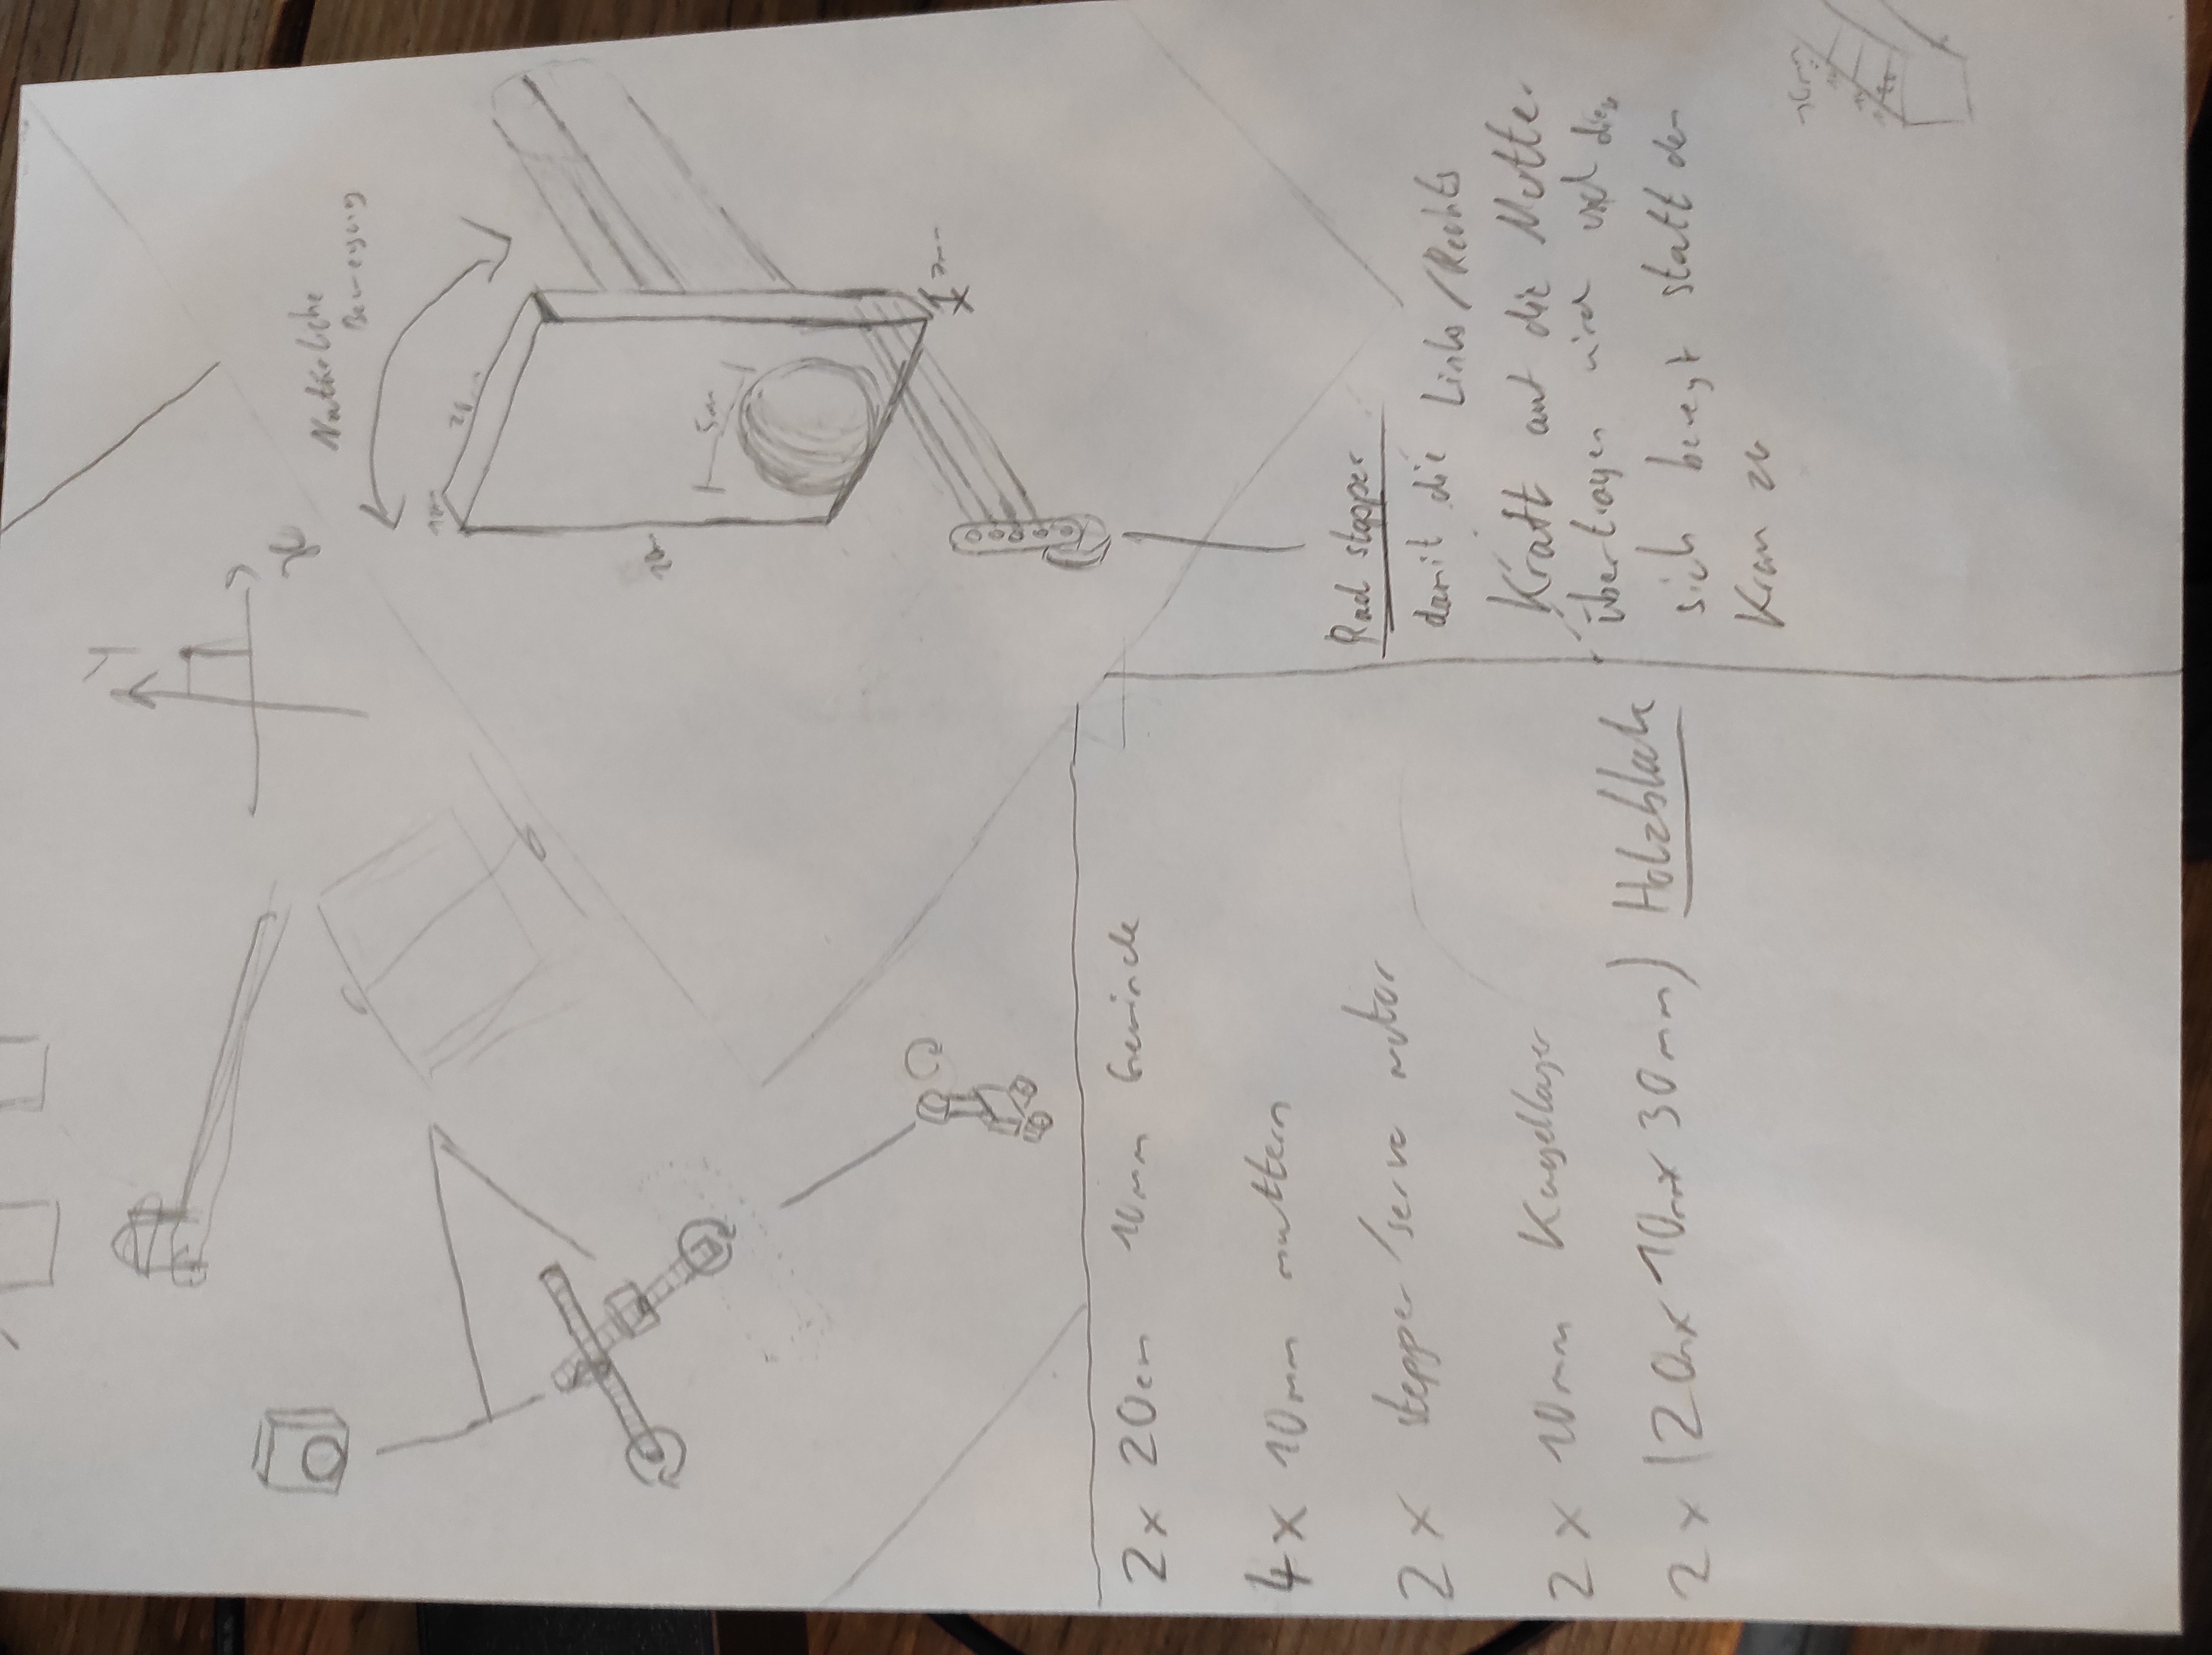 Y
x
Natürliche
Bewegung
10mm
5mm
2mm
2x 20cm 10mm Gewinde
4x 10mm muttern
2x stepper/servo motor
2x 10mm Kugellager
2x (20mmx 10mmx 30mm) Holzblock
Rad stopper
damit die Links/Rechts
Kraft auf die Mutter
übertragen wird und
sich bewegt statt den
Kran zu